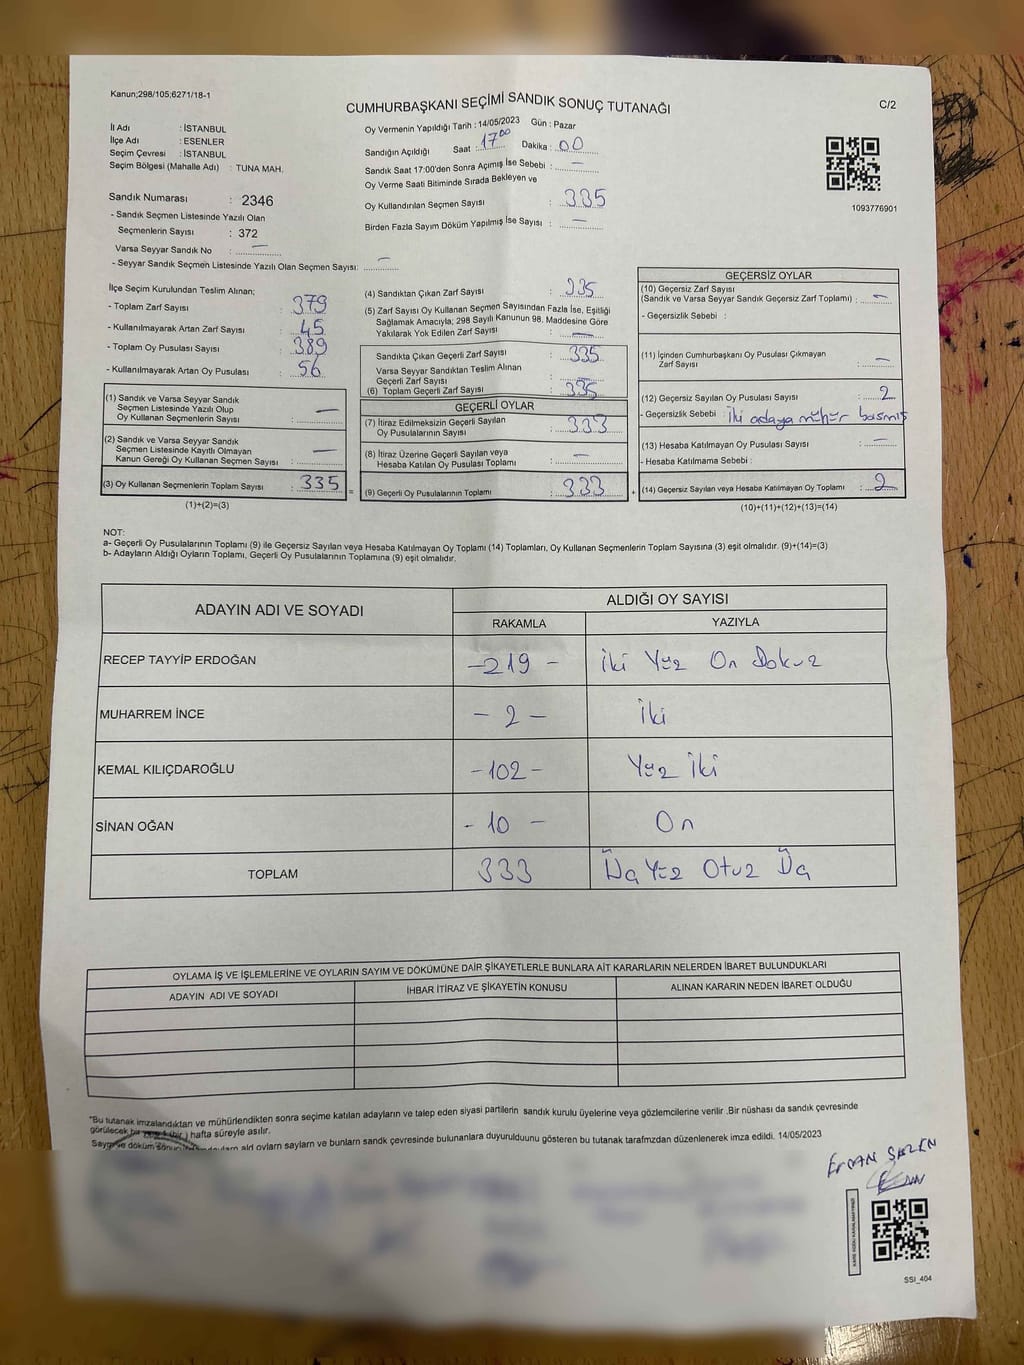 Kanun;298/105;6271/18-1
CUMHURBAŞKANI SEÇİMİ SANDIK SONUÇ TUTANAĞI
C/2
İl Adı : İSTANBUL
İlçe Adı : ESENLER
Seçim Çevresi : İSTANBUL
Seçim Bölgesi (Mahalle Adı) : TUNA MAH.
Sandık Numarası : 2346
- Sandık Seçmen Listesinde Yazılı Olan
Seçmenlerin Sayısı : 372
Varsa Seyyar Sandık No : —
- Seyyar Sandık Seçmen Listesinde Yazılı Olan Seçmen Sayısı: —
Oy Vermenin Yapıldığı Tarih : 14/05/2023 Gün : Pazar
Sandığın Açıldığı Saat : 17 00 Dakika : 00
Sandık Saat 17:00'den Sonra Açımış İse Sebebi : —
Oy Verme Saati Bitiminde Sırada Bekleyen ve
Oy Kullandırılan Seçmen Sayısı : 335
Birden Fazla Sayım Döküm Yapılmış İse Sayısı : —
1093776901
İlçe Seçim Kurulundan Teslim Alınan;
- Toplam Zarf Sayısı : 379
- Kullanılmayarak Artan Zarf Sayısı : 45
- Toplam Oy Pusulası Sayısı : 389
- Kullanılmayarak Artan Oy Pusulası : 56
(1) Sandık ve Varsa Seyyar Sandık
Seçmen Listesinde Yazılı Olup
Oy Kullanan Seçmenlerin Sayısı : —
(2) Sandık ve Varsa Seyyar Sandık
Seçmen Listesinde Kayıtlı Olmayan
Kanun Gereği Oy Kullanan Seçmen Sayısı : —
(3) Oy Kullanan Seçmenlerin Toplam Sayısı : 335 =
(1)+(2)=(3)
(4) Sandıktan Çıkan Zarf Sayısı : 335
(5) Zarf Sayısı Oy Kullanan Seçmen Sayısından Fazla İse, Eşitliği
Sağlamak Amacıyla; 298 Sayılı Kanunun 98. Maddesine Göre
Yakılarak Yok Edilen Zarf Sayısı : —
Sandıkta Çıkan Geçerli Zarf Sayısı : 335
Varsa Seyyar Sandıktan Teslim Alınan
Geçerli Zarf Sayısı : —
(6) Toplam Geçerli Zarf Sayısı : 335
GEÇERLİ OYLAR
(7) İtiraz Edilmeksizin Geçerli Sayılan
Oy Pusulalarının Sayısı : 333
(8) İtiraz Üzerine Geçerli Sayılan veya
Hesaba Katılan Oy Pusulası Toplamı : —
(9) Geçerli Oy Pusulalarının Toplamı : 333 +
GEÇERSİZ OYLAR
(10) Geçersiz Zarf Sayısı
(Sandık ve Varsa Seyyar Sandık Geçersiz Zarf Toplamı) : —
- Geçersizlik Sebebi :
(11) İçinden Cumhurbaşkanı Oy Pusulası Çıkmayan
Zarf Sayısı : —
(12) Geçersiz Sayılan Oy Pusulası Sayısı : 2
- Geçersizlik Sebebi : İki adaya mühür basmış
(13) Hesaba Katılmayan Oy Pusulası Sayısı : —
- Hesaba Katılmama Sebebi :
(14) Geçersiz Sayılan veya Hesaba Katılmayan Oy Toplamı : 2
(10)+(11)+(12)+(13)=(14)
NOT:
a- Geçerli Oy Pusulalarının Toplamı (9) ile Geçersiz Sayılan veya Hesaba Katılmayan Oy Toplamı (14) Toplamları, Oy Kullanan Seçmenlerin Toplam Sayısına (3) eşit olmalıdır. (9)+(14)=(3)
b- Adayların Aldığı Oyların Toplamı, Geçerli Oy Pusulalarının Toplamına (9) eşit olmalıdır.
ADAYIN ADI VE SOYADI
ALDIĞI OY SAYISI
RAKAMLA YAZIYLA
RECEP TAYYİP ERDOĞAN -219- İki Yüz On Dokuz
MUHARREM İNCE -2- İki
KEMAL KILIÇDAROĞLU -102- Yüz İki
SİNAN OĞAN -10- On
TOPLAM 333 Üç Yüz Otuz Üç
OYLAMA İŞ VE İŞLEMLERİNE VE OYLARIN SAYIM VE DÖKÜMÜNE DAİR ŞİKAYETLERLE BUNLARA AİT KARARLARIN NELERDEN İBARET BULUNDUKLARI
ADAYIN ADI VE SOYADI İHBAR İTİRAZ VE ŞİKAYETİN KONUSU ALINAN KARARIN NEDEN İBARET OLDUĞU
"Bu tutanak imzalandıktan ve mühürlendikten sonra seçime katılan adayların ve talep eden siyasi partilerin sandık kurulu üyelerine veya gözlemcilerine verilir .Bir nüshası da sandık çevresinde
görülecek bir yere 1 (bir ) hafta süreyle asılır.
ald oylarn saylarn ve bunlarn sandk çevresinde bulunanlara duyurulduunu gösteren bu tutanak tarafmzdan düzenlenerek imza edildi. 14/05/2023
SSI_404